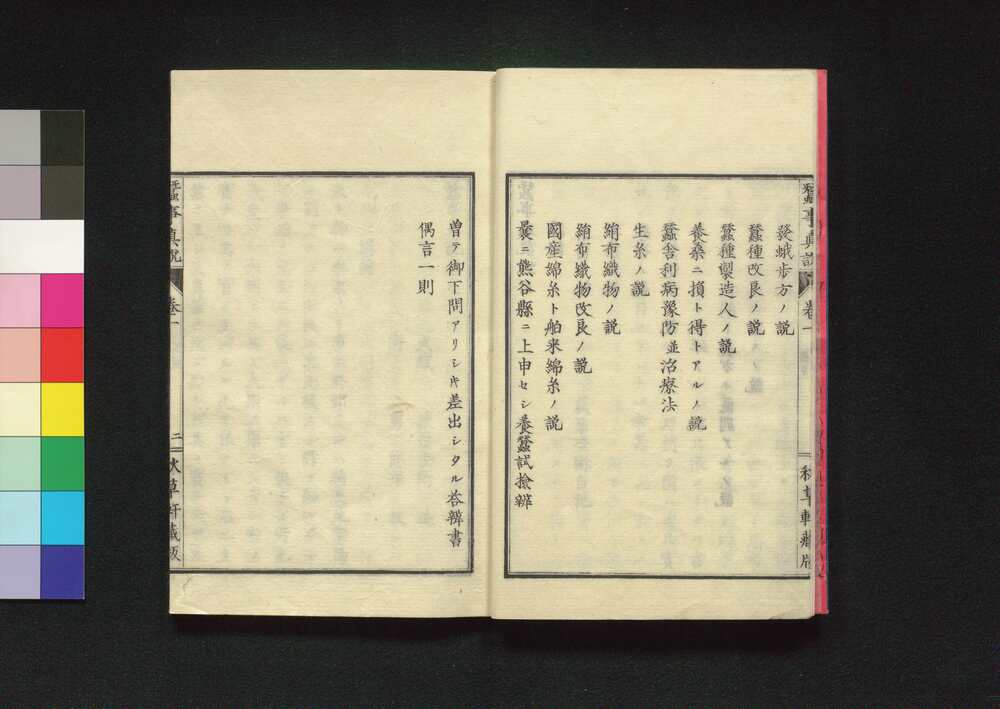 蠶事眞説
卷一
發蛾歩方ノ説
蠶種改良ノ説
蠶種製造人ノ説
養桑ニ損ト得トアルノ説
蠶舎利病豫防並治療法
生糸ノ説
絹布織物ノ説
絹布織物改良ノ説
國産綿糸ト舶来綿糸ノ説
曩ニ熊谷縣ニ上申セシ養蠶試撿辨
曽テ御下問アリシ𪜈差出シタル答辨書
偶言一則
蠶事眞説
卷一
二
秋草軒藏版